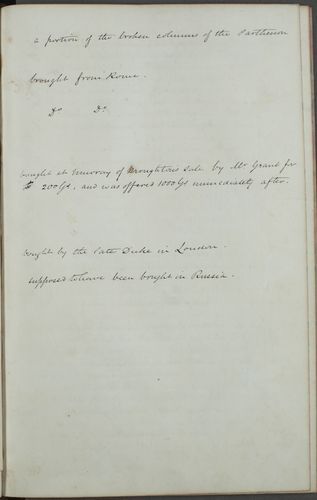 a portion of the broken columns of the Parthenon
brought from Rome.
Do Do
bought at Murray of Broughtons sale by Mr. Grant for
200 Gs, and was offered 1000 Gs immediately after.
bought by the late Duke in London.
supposed to have been bought in Russia.